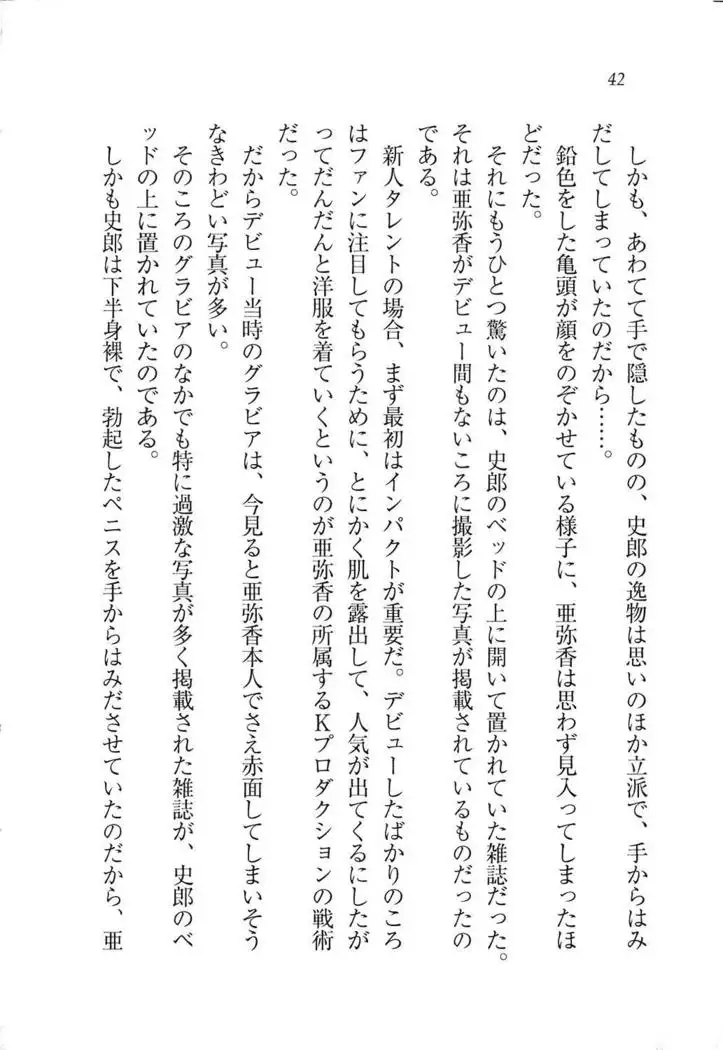 42
しかも、あわてて手で隠したものの、史郎の逸物は思いのほか立派で、手からはみ
だしてしまっていたのだから……。
鉛色をした亀頭が顔をのぞかせている様子に、亜弥香は思わず見入ってしまったほ
どだった。
それにもうひとつ驚いたのは、史郎のベッドの上に開いて置かれていた雑誌だった。
それは亜弥香がデビュー間もないころに撮影した写真が掲載されているものだったの
である。
新人タレントの場合、まず最初はインパクトが重要だ。デビューしたばかりのころ
はファンに注目してもらうために、とにかく肌を露出して、人気が出てくるにしたが
ってだんだんと洋服を着ていくというのが亜弥香の所属するKプロダクションの戦術
だった。
だからデビュー当時のグラビアは、今見ると亜弥香本人でさえ赤面してしまいそう
なきわどい写真が多い。
そのころのグラビアのなかでも特に過激な写真が多く掲載された雑誌が、史郎のベ
ッドの上に置かれていたのである。
しかも史郎は下半身裸で、勃起したペニスを手からはみださせていたのだから、亜